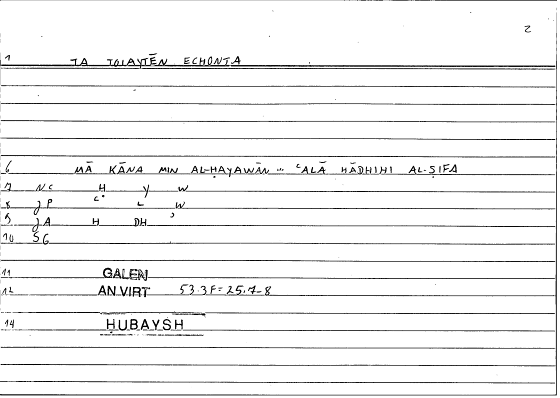 2
1 TA TOIAYTĒN ECHONTA
6 MĀ KĀNA MIN AL-ḤAYAWĀN ... ʿALĀ HĀDHIHI AL-ṢIFA
7 NC H Y W
8 JP ʿ L W
9 JA H DH ʾ
10 SG
11 GALEN
12 AN.VIRT 53.3F=25.7-8
14 ḤUBAYSH